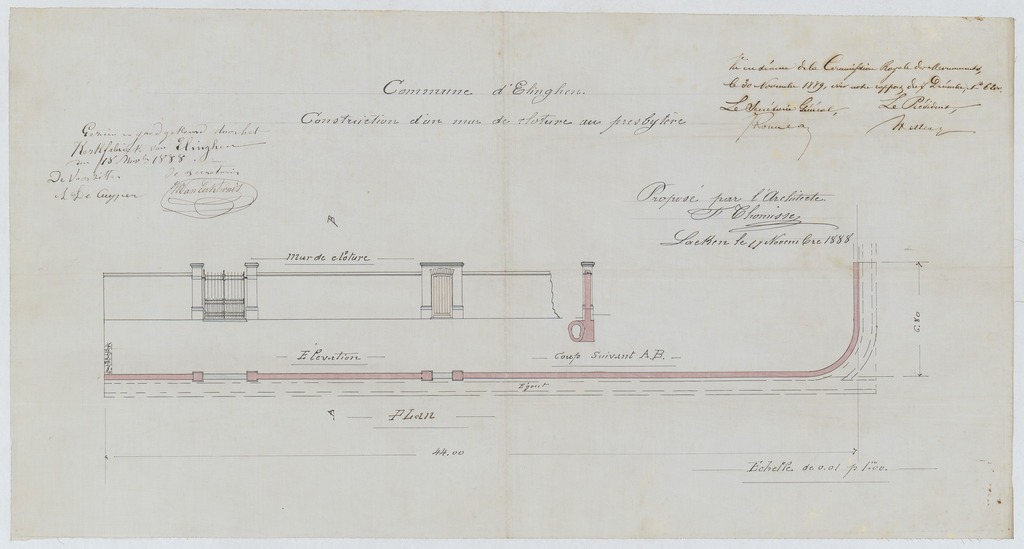 Commune d'Elinghen.
Construction d'un mur de clôture au presbytère
Gezien en goedgekeurd door het
Kerkfabriek van Elinghen
den 18 Novb 1888
De Voorzitter De Secretaris
A De Cuyper
Vu en séance de la Commission Royale des Monuments,
le 30 Novembre 1889, voir notre rapport du Décembre, no
Le Secrétaire Général, Le Président,
Proposé par l'Architecte
Laeken le 14 Novembre 1888
B
Mur de clôture
Elévation
Coup Suivant A.B.
6.80
Egout
A
PLan
44.00
Echelle de 0.01 p 1m00.